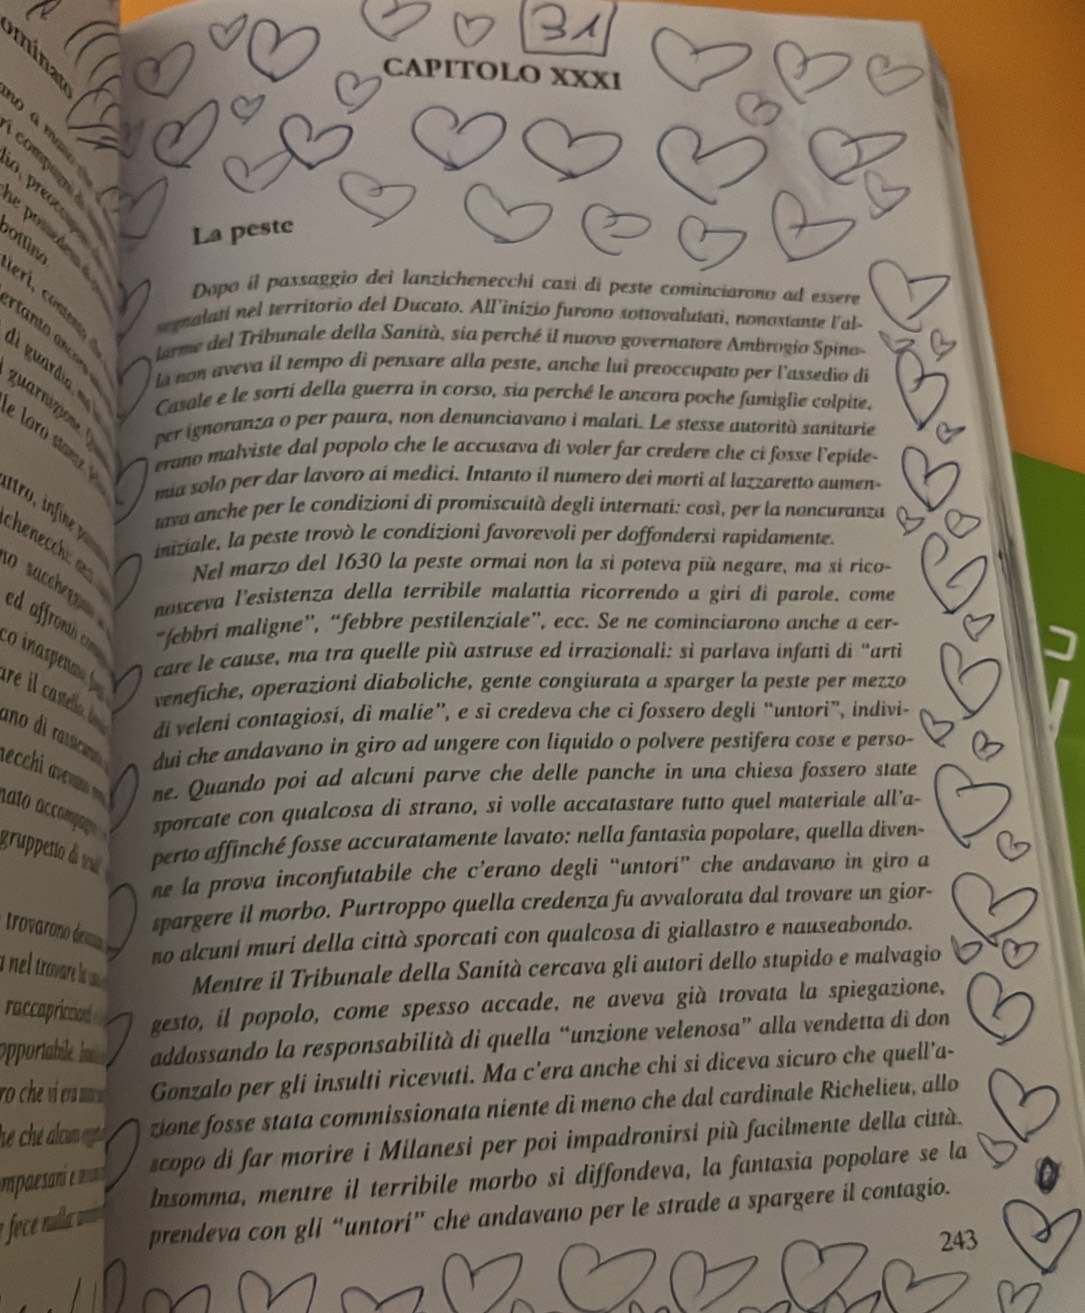 31
CAPITOLO XXXI
La peste
Dopo il passaggio dei lanzichenecchi casi di peste cominciarono ad essere
segnalati nel territorio del Ducato. All'inizio furono sottovalutati, nonostante l'al-
larme del Tribunale della Sanità, sia perché il nuovo governatore Ambrogio Spino-
la non aveva il tempo di pensare alla peste, anche lui preoccupato per l'assedio di
Casale e le sorti della guerra in corso, sia perché le ancora poche famiglie colpite,
per ignoranza o per paura, non denunciavano i malati. Le stesse autorità sanitarie
erano malviste dal popolo che le accusava di voler far credere che ci fosse l'epide-
mia solo per dar lavoro ai medici. Intanto il numero dei morti al lazzaretto aumen-
tava anche per le condizioni di promiscuità degli internati: così, per la noncuranza
iniziale, la peste trovò le condizioni favorevoli per doffondersi rapidamente.
Nel marzo del 1630 la peste ormai non la si poteva più negare, ma si rico-
nosceva l'esistenza della terribile malattia ricorrendo a giri di parole, come
"febbri maligne", "febbre pestilenziale", ecc. Se ne cominciarono anche a cer-
care le cause, ma tra quelle più astruse ed irrazionali: si parlava infatti di "arti
venefiche, operazioni diaboliche, gente congiurata a sparger la peste per mezzo
di veleni contagiosi, di malie", e si credeva che ci fossero degli "untori", indivi-
dui che andavano in giro ad ungere con liquido o polvere pestifera cose e perso-
ne. Quando poi ad alcuni parve che delle panche in una chiesa fossero state
sporcate con qualcosa di strano, si volle accatastare tutto quel materiale all'a-
perto affinché fosse accuratamente lavato: nella fantasia popolare, quella diven-
ne la prova inconfutabile che c'erano degli "untori" che andavano in giro a
spargere il morbo. Purtroppo quella credenza fu avvalorata dal trovare un gior-
no alcuni muri della città sporcati con qualcosa di giallastro e nauseabondo.
Mentre il Tribunale della Sanità cercava gli autori dello stupido e malvagio
gesto, il popolo, come spesso accade, ne aveva già trovata la spiegazione,
addossando la responsabilità di quella "unzione velenosa" alla vendetta di don
Gonzalo per gli insulti ricevuti. Ma c'era anche chi si diceva sicuro che quell'a-
zione fosse stata commissionata niente di meno che dal cardinale Richelieu, allo
scopo di far morire i Milanesi per poi impadronirsi più facilmente della città.
Insomma, mentre il terribile morbo si diffondeva, la fantasia popolare se la
prendeva con gli "untori" che andavano per le strade a spargere il contagio.
243